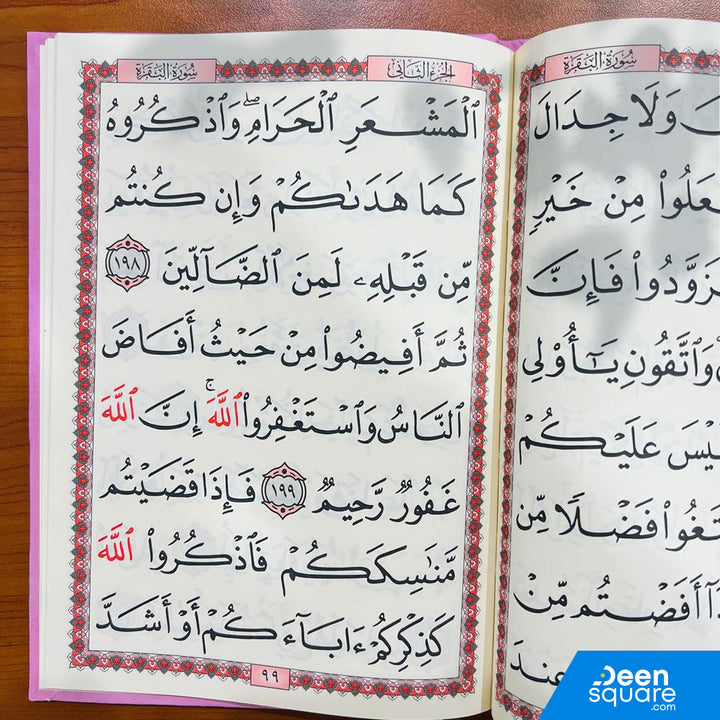 سُورَةُ البَقَرَةِ
وَلَا جِدَالَ
مِنْ خَيْرٍ
فَإِنَّ
وَٱتَّقُونِ يَـٰٓأُو۟لِى
عَلَيْكُمْ
فَضْلًا مِّن
أَفَضْتُم مِّنْ
عِندَ
الجُزْءُ الثَّانِي
سُورَةُ البَقَرَةِ
ٱلْمَشْعَرِ ٱلْحَرَامِ ۖ وَٱذْكُرُوهُ
كَمَا هَدَىٰكُمْ وَإِن كُنتُم
مِّن قَبْلِهِۦ لَمِنَ ٱلضَّآلِّينَ ١٩٨
ثُمَّ أَفِيضُوا۟ مِنْ حَيْثُ أَفَاضَ
ٱلنَّاسُ وَٱسْتَغْفِرُوا۟ ٱللَّهَ ۚ إِنَّ ٱللَّهَ
غَفُورٌ رَّحِيمٌ ١٩٩ فَإِذَا قَضَيْتُم
مَّنَـٰسِكَكُمْ فَٱذْكُرُوا۟ ٱللَّهَ
كَذِكْرِكُمْ ءَابَآءَكُمْ أَوْ أَشَدَّ
٩٩
Deen
square
.com